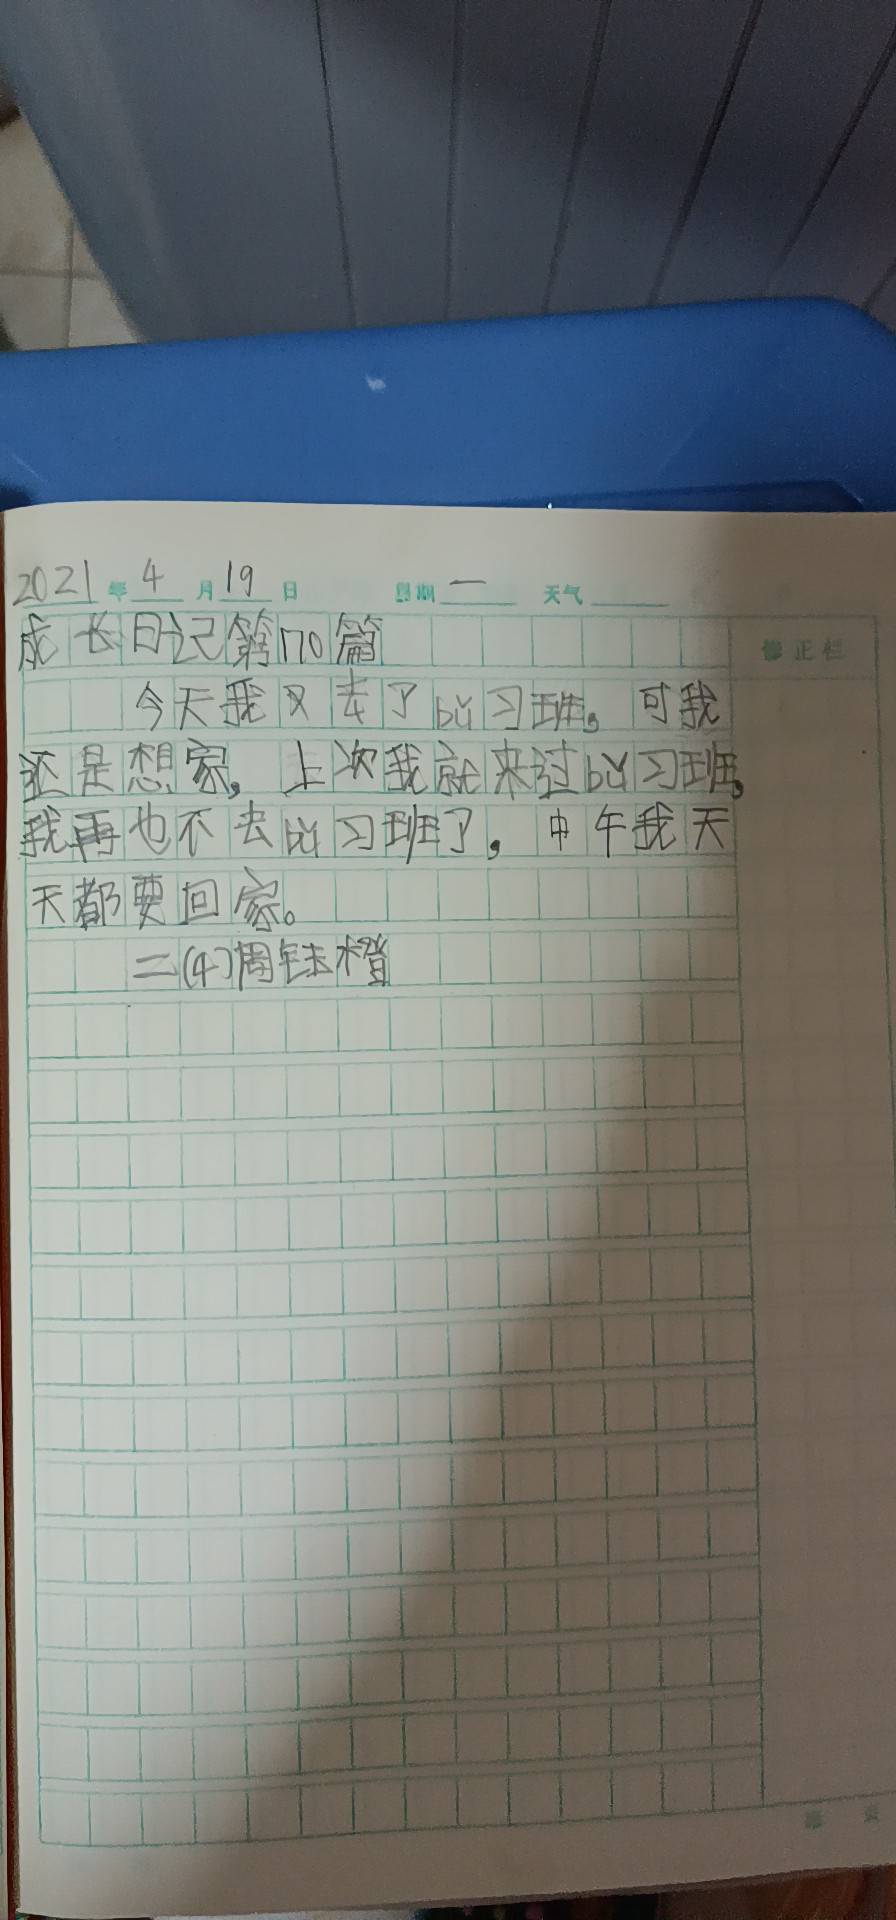 2021年4月19日 星期一 天气
成长日记第170篇
修正栏
今天我又去了bǔ习班。可我
还是想家，上次我就来过bǔ习班，
我再也不去bǔ习班了，中午我天
天都要回家。
二(4)周钰橙